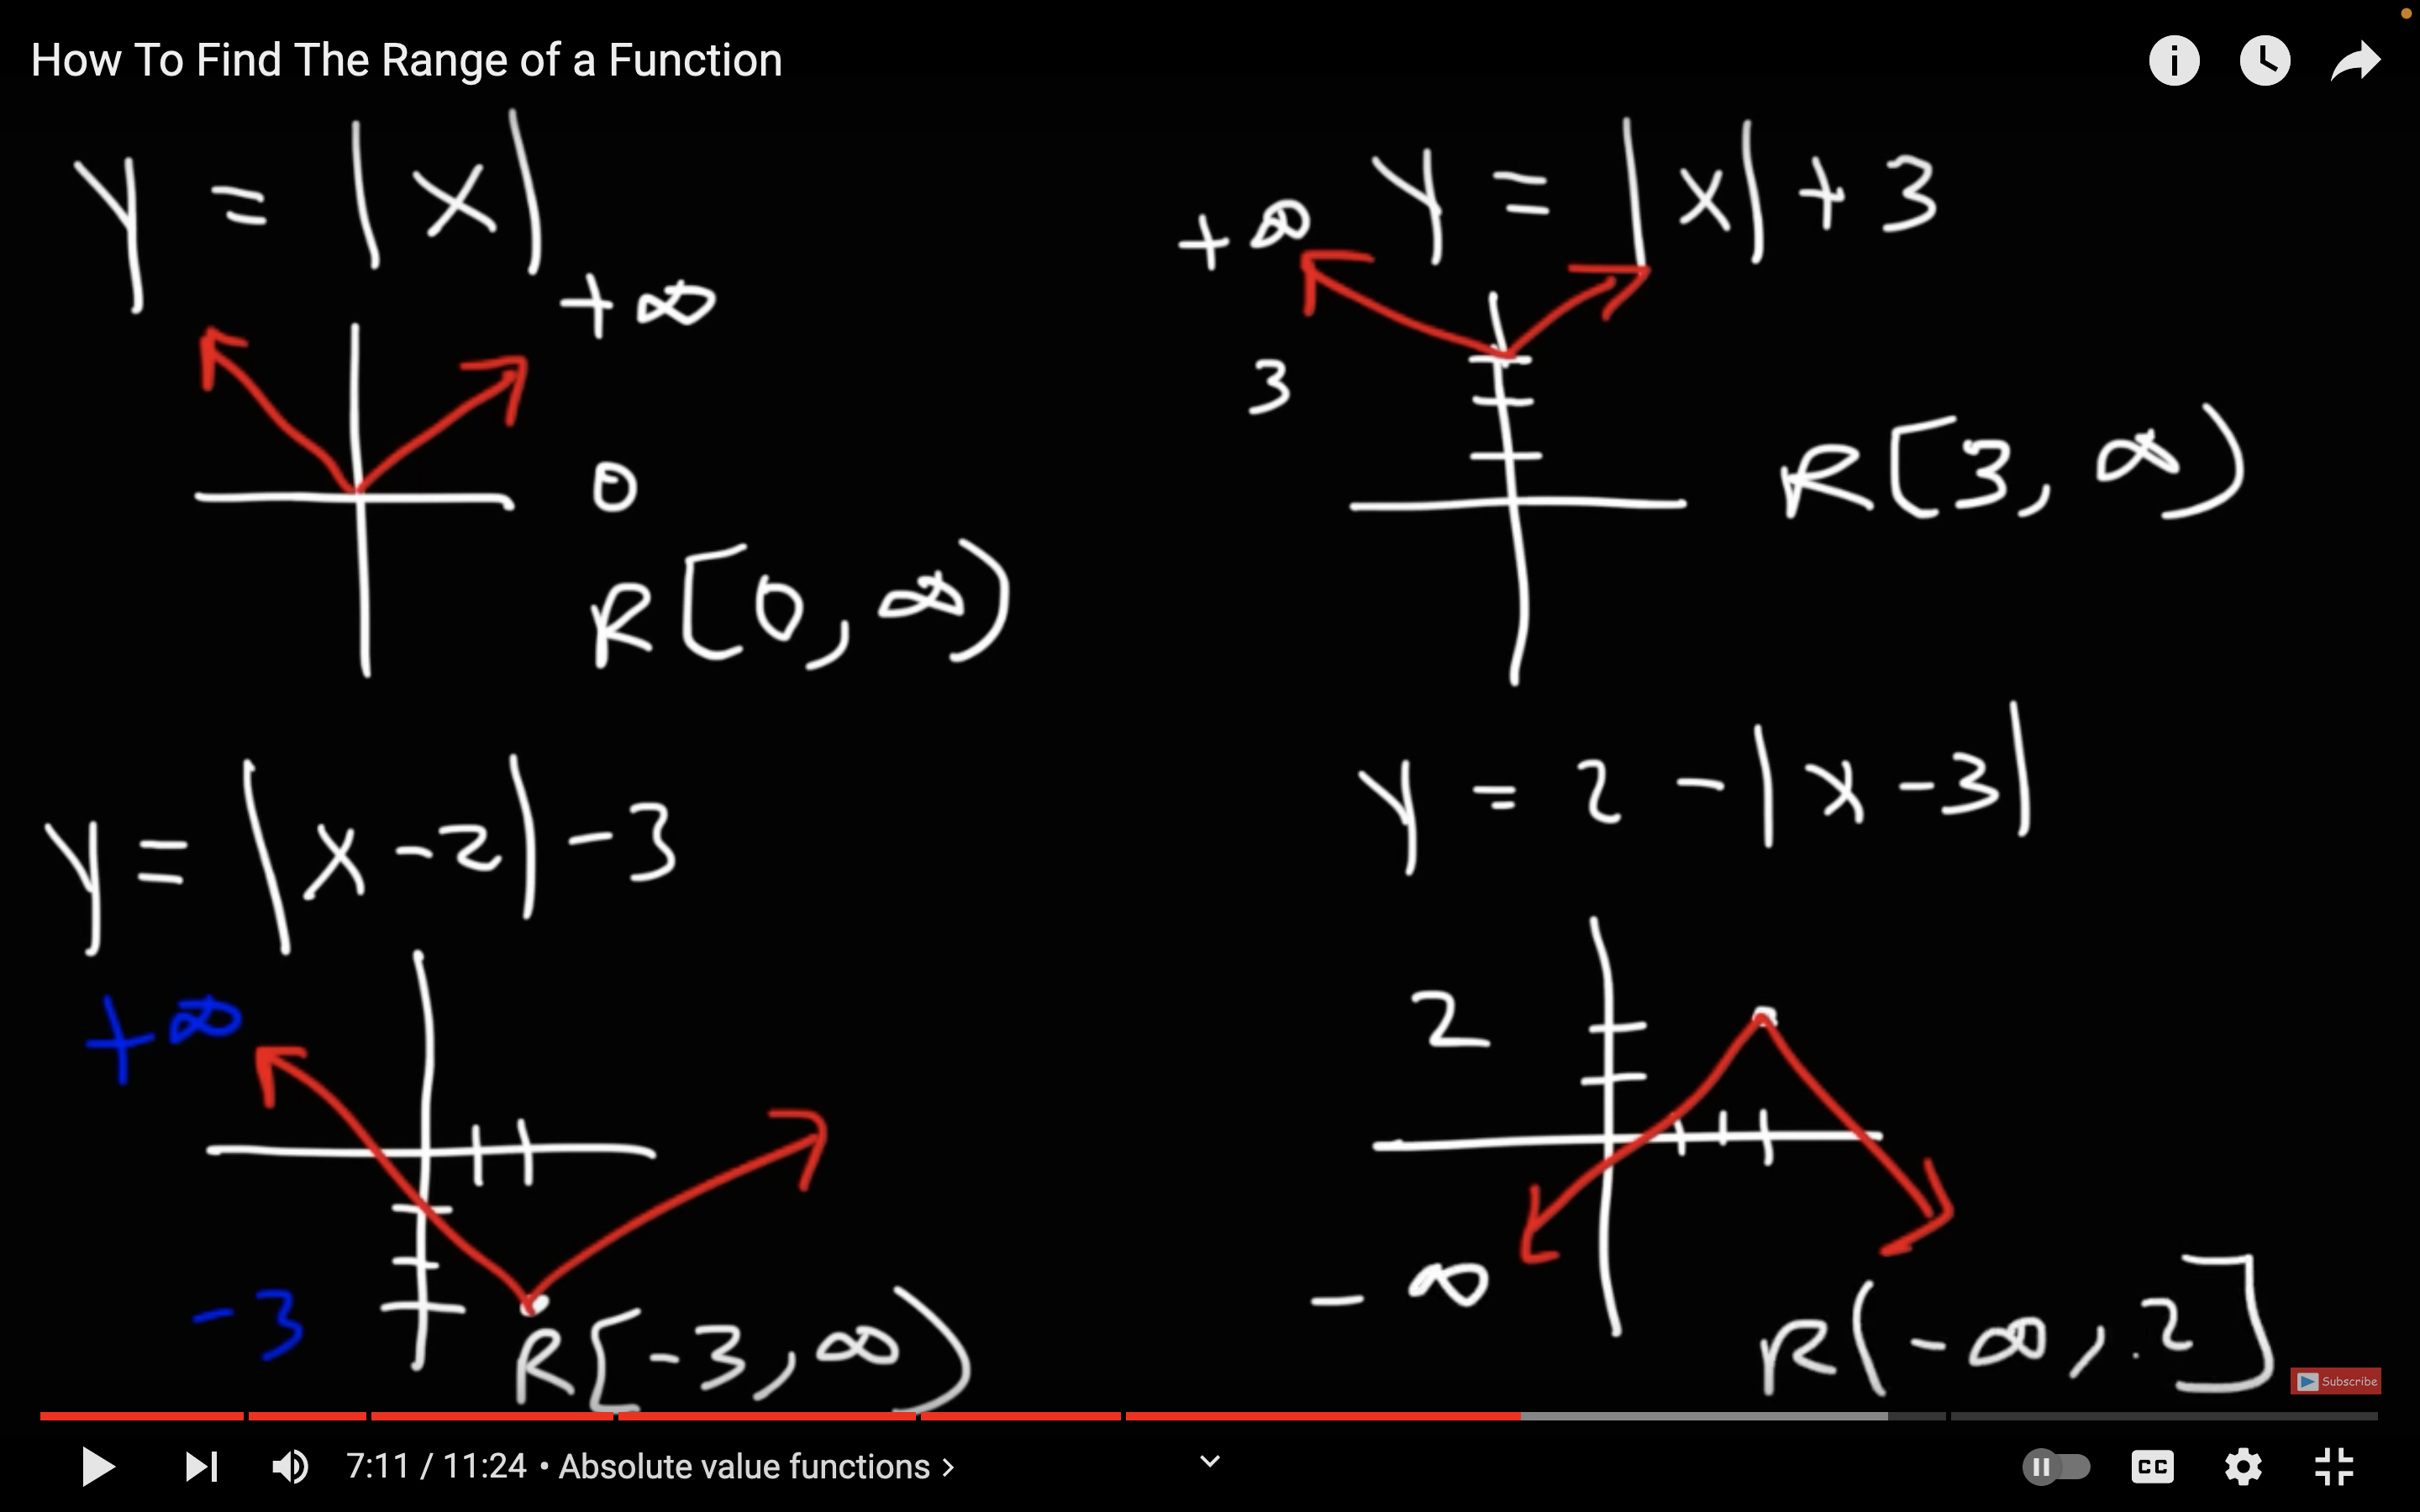 How To Find The Range of a Function
y = |x|
+∞
0
R[0, ∞)
y = |x| + 3
+∞
3
R[3, ∞)
y = |x - 2| - 3
+∞
-3
R[-3, ∞)
y = 2 - |x - 3|
2
-∞
R(-∞, 2]
Subscribe
7:11 / 11:24 • Absolute value functions >
CC